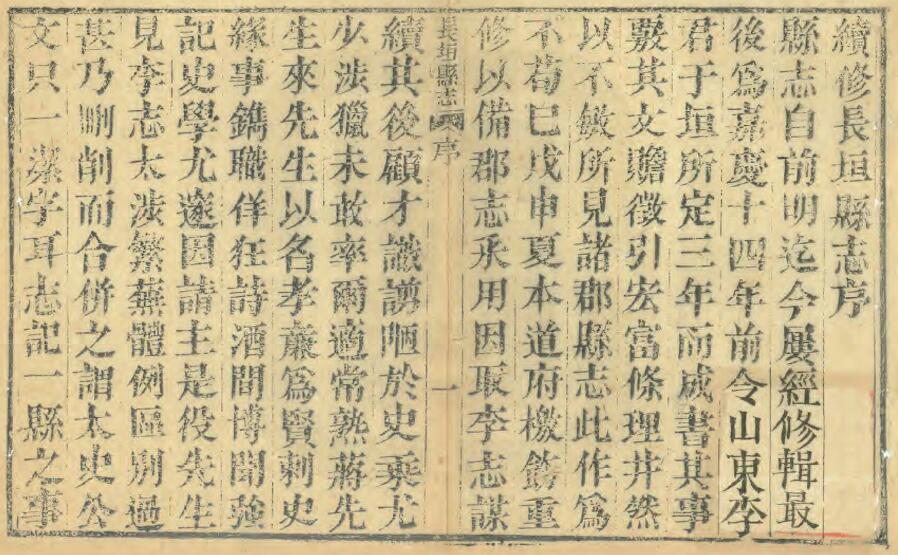 續修長垣縣志序
縣志自前明迄今屢經修輯最
後爲嘉慶十四年前令山東李
君于垣所定三年而成書其事
覈其文贍徵引宏富條理井然
以不敏所見諸郡縣志此作爲
不茍已戊申夏本道府檄飭重
修以備郡志采用因取李志謀
長垣縣志 序 一
續其後顧才識謭陋於史乘尤
少涉獵未敢率爾適常熟蔣先
生來先生以名孝廉爲賢刺史
緣事鐫職佯狂詩酒間博聞強
記史學尤邃因請主是役先生
見李志太涉繁蕪體例區別過
甚乃刪削而合併之謂太史公
文只一潔字耳志記一縣之事